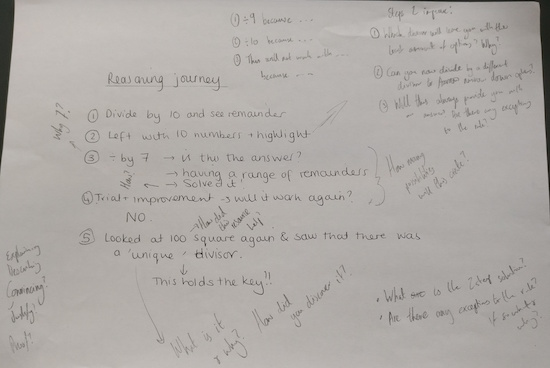 ① ÷9 because ...
② ÷10 because ...
③ This will not work with ...
because ...
Reasoning journey
① Divide by 10 and see remainder
② Left with 10 numbers + highlight
③ ÷ by 7 → is this the answer?
→ having a range of remainders
How? ← → Solved it!
④ Trial + improvement → will it work again?
NO.
→ How did this
why?
⑤ Looked at 100 square again & saw that there was
a 'unique' divisor.
This holds the key!!
Why 7?
Steps
① Which divisor will leave you with the
least amount of options? Why?
② Can you now divide by a different
divisor to
③ Will this always provide you with
an answer? Are there any exceptions
to the rule?
How many
will this create?
Explaining
Convincing?
Justify?
Proof?
What is it
& why?
How did
you discover it?
• What is the 2 step solution?
• Are there any exceptions to the rule?
If so what &
why?